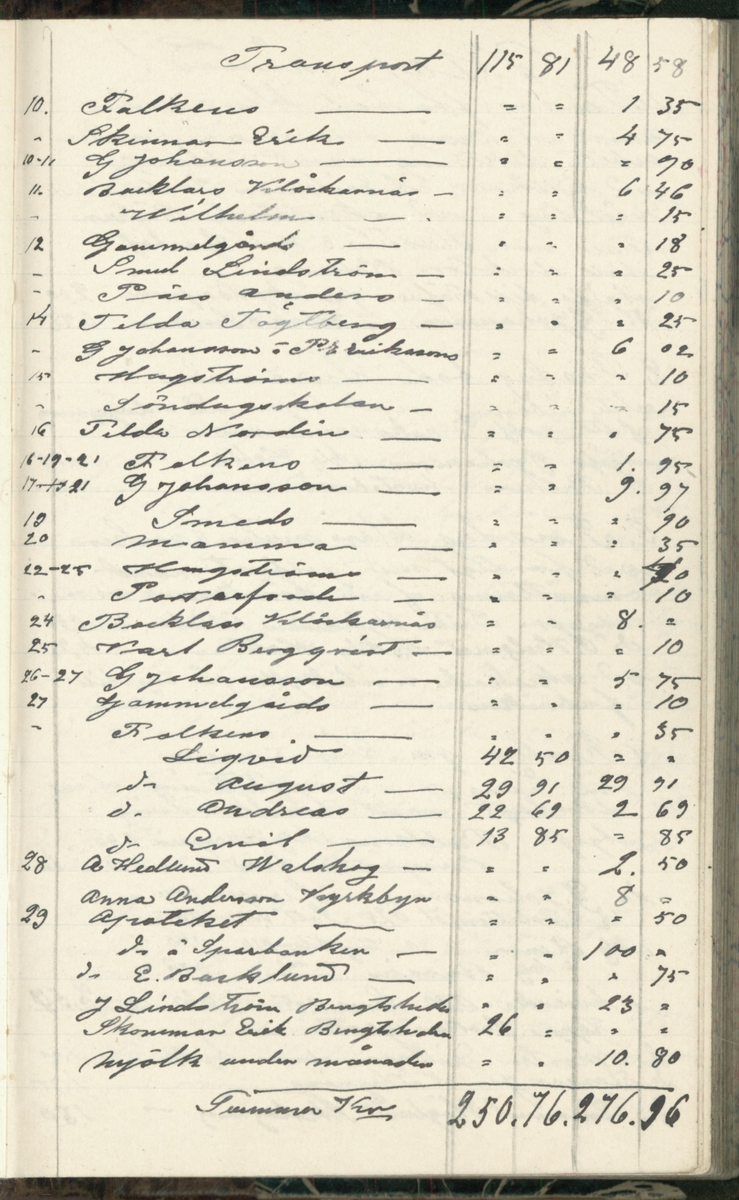 Transport 115 81 48 58
10. Falkens — " " 1 35
" Skinnar Erik — " " 4 75
10-11 G Johansson — " " " 90
11. Backlars Klockarnäs — " " 6 46
" Wilhelm — " " " 15
12 Gammelgårds — " " " 18
" Smed Lindström — " " " 25
" Pärs Anders — " " " 10
14 Tilda Tögtberg — " " " 25
" G Johansson o P Erikssons " " 6 02
15 Hagströms — " " " 10
" Söndagsskolan — " " " 15
16 Tilda Nordin — " " " 75
16-19-21 Falkens — " " 1. 95
17-19 21 G Johansson — " " 9. 97
19 Smeds — " " " 90
20 Mamma — " " " 35
22-25 Hagströms — " " " 20
" — " " " 10
24 Backlass Klockarnäs " " 8. "
25 Karl Bergqvist — " " " 10
26-27 G Johansson — " " 5 75
27 Gammelgårds — " " " 10
" Falkens — " " " 35
Liqvid 42 50 " "
do August — 29 91 29 91
do Andreas — 22 69 2 69
do Emil — 13 85 " 85
28 A Hedlund Walskog — " " 2. 50
Anna Andersson Kyrkbyn 8 "
29 Apoteket — " " " 50
do å Sparbanken — " " 100 "
do E. Backlund — " " " 75
J Lindström Bengtsheden " " 23 "
Skommar Erik Bengtsheden 26 " " "
Mjölk under månaden " " 10. 80
Summa Kr 250.76.276.96